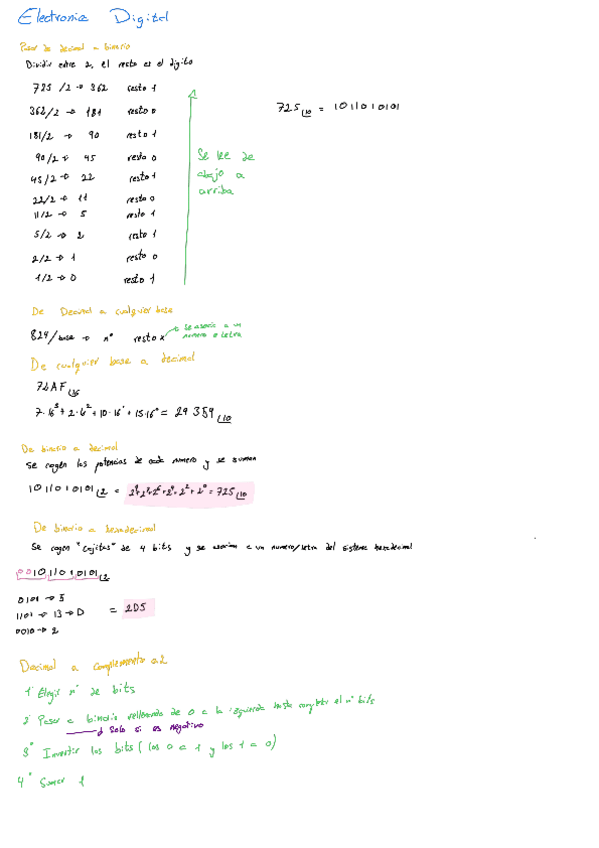 Electronica Digital
Pasar de decimal a binario
Dividir entre 2, el resto es el digito
725 /2 → 362 resto 1
725⌊10 = 1011010101
362/2 → 181 resto 0
181/2 → 90 resto 1
90/2 → 45 resto 0
45/2 → 22 resto 1
22/2 → 11 resto 0
11/2 → 5 resto 1
5/2 → 2 resto 1
2/2 → 1 resto 0
1/2 → 0 resto 1
Se lee de
abajo a
arriba
De Decimal a cualquier base
824/base → nº resto x
se asocia a un
numero o letra
De cualquier base a decimal
72AF⌊16
7·16³ + 2·6² + 10·16¹ + 15·16⁰ = 29359⌊10
De binario a decimal
Se cogen las potencias de cada numero y se suman
1011010101⌊2 = 2⁹+2⁷+2⁶+2⁴+2²+2⁰ = 725⌊10
De binario a hexadecimal
Se cogen "cajitas" de 4 bits y se asocian a un numero/letra del sistema hexadecimal
001011010101⌊2
0101 → 5
1101 → 13 → D = 2D5
0010 → 2
Decimal a complemento a 2
1º Elegir nº de bits
2º Pasar a binario rellenando de 0 a la izquierda hasta completar el nº bits
Solo si es negativo
3º Invertir los bits (los 0 a 1 y los 1 a 0)
4º Sumar 1